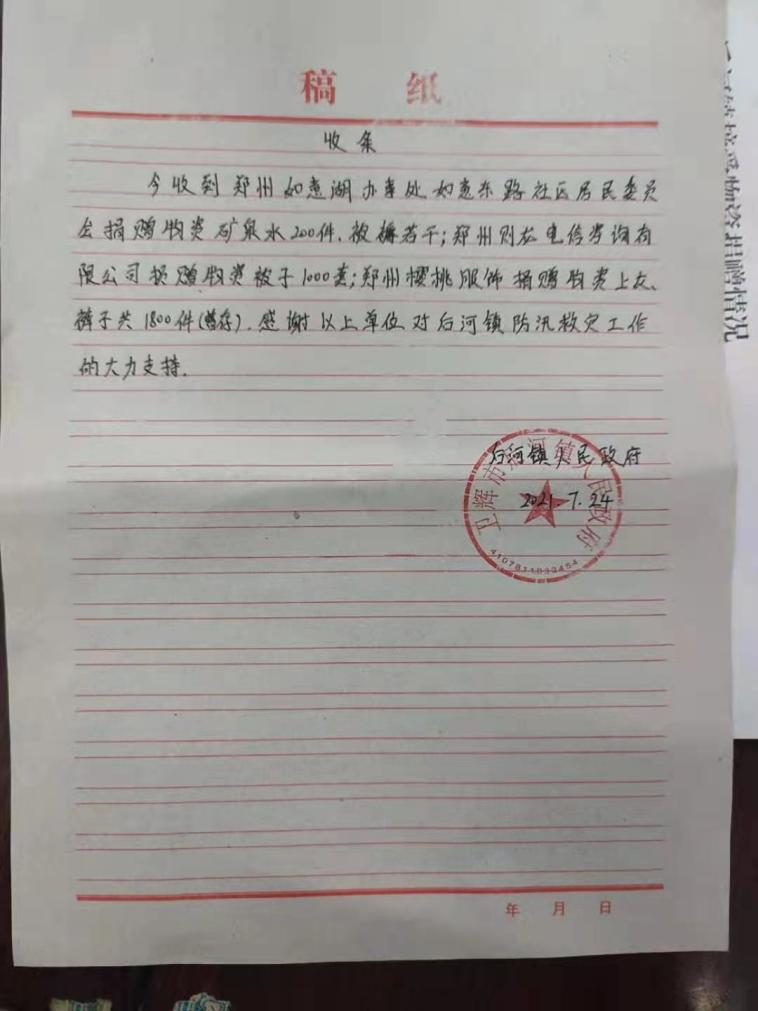 稿 纸
收条
今收到郑州如意湖办事处如意东路社区居民委员
会捐赠物资矿泉水200件、被褥若干;郑州则龙电信咨询有
限公司捐赠物资被子1000套;郑州樱桃服饰捐赠物资上衣、
裤子共1800件(暂存).感谢以上单位对后河镇防汛救灾工作
的大力支持.
后河镇人民政府
2021.7.24
卫辉市后河镇人民政府
4107811032454
年 月 日
接受物资捐赠情况